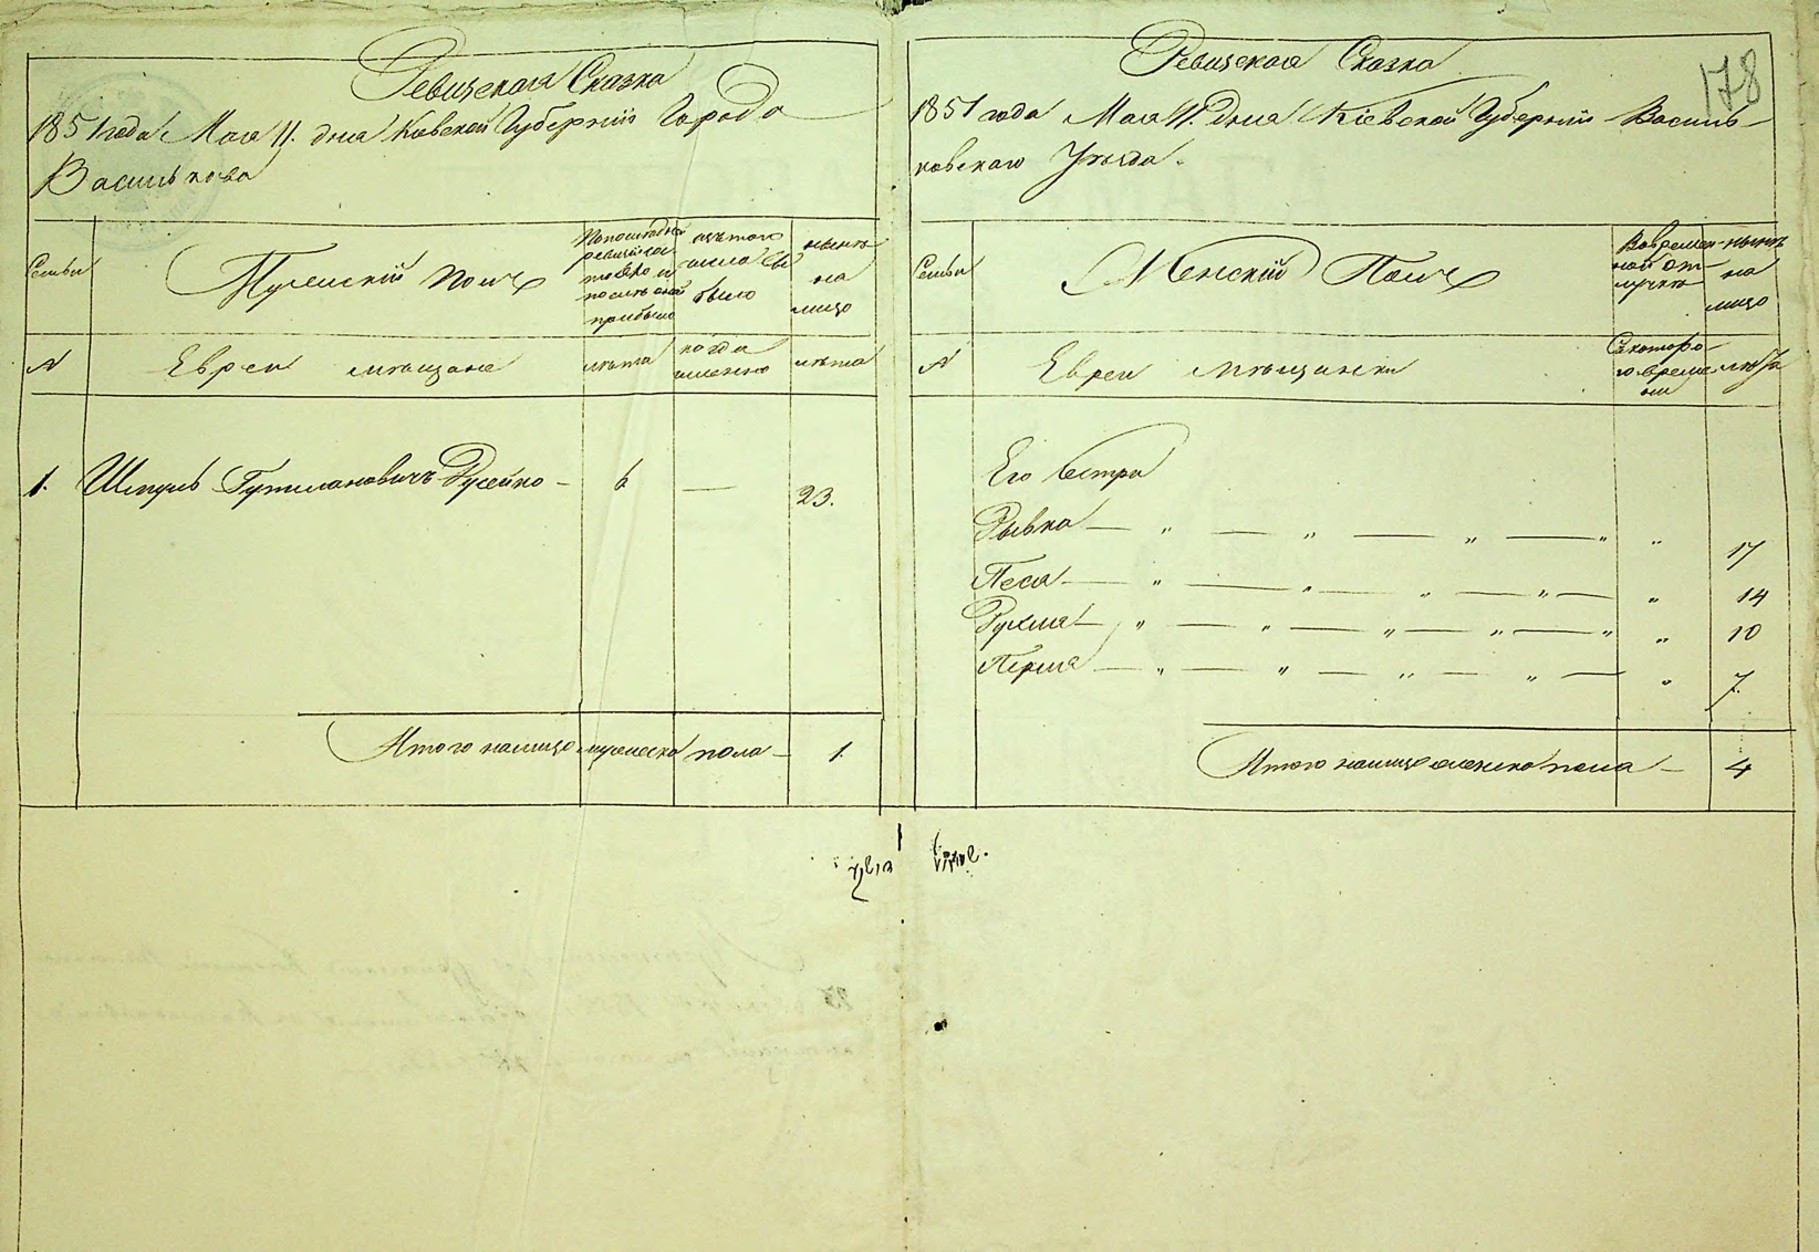 Ревизская Сказка
1851 года Мая 11. дня Киевской Губернии Города
Василькова
Семьи
Мужескій Полъ
По последней
ревизіи со
и
после оной
прибыло
изъ того
числа вы
было
ныне
на
лицо
№
Евреи мещане
лета
когда
именно
лета
1.
Шмуль Гутмановичъ Русейко — 6 — 23.
Итого налицо мужеска пола — 1.
178
Ревизская Сказка
1851 года Мая 11. дня Кіевской Губерніи Василь-
ковскаго Уезда.
Семьи
Женскій Полъ
Во времен-
ной от-
лучке
ныне
на
лицо
№
Евреи мещанки
Съ которо-
го време-
ни
лета
Его сестры
Рывка — " — " — " — " " 17
Песя — " — " — " — " — " 14
Рухля — " — " — " — " — " " 10
Перля — " — " — " — " — " 7.
Итого налицо женска пола — 4